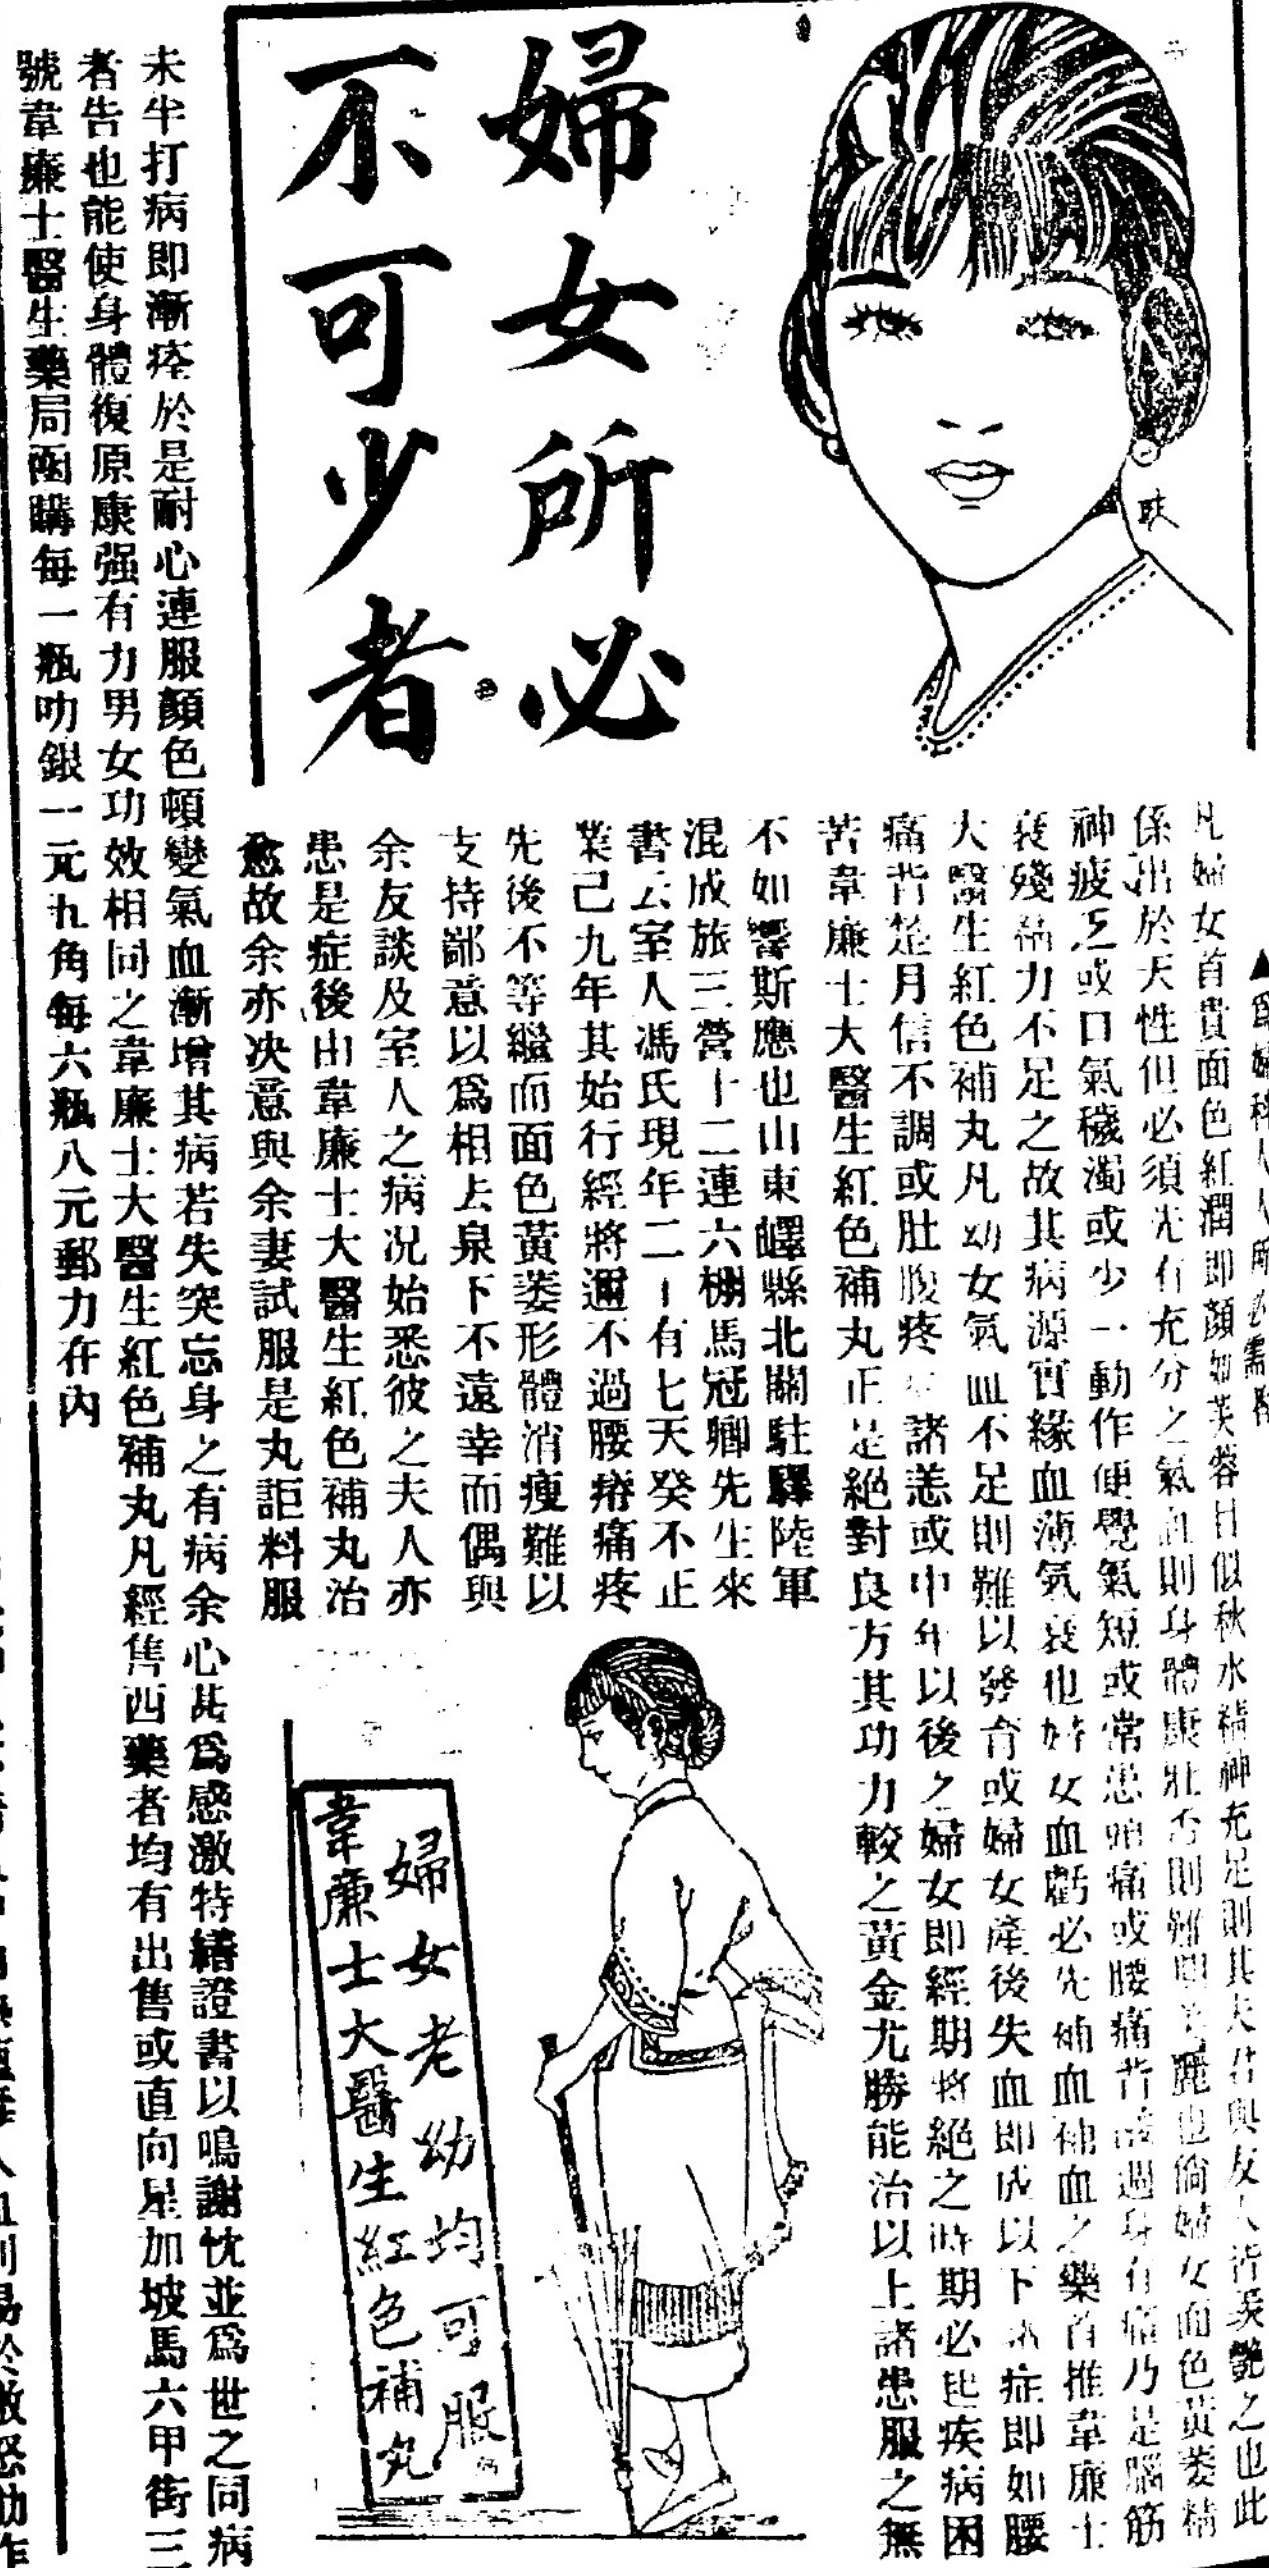 婦女所必
不可少者
凡婦女首貴面色紅潤即顏如芙蓉目似秋水精神充足則其夫君與友人皆羨艷之也此
係出於天性但必須先有充分之氣血則身體康壯否則難期美麗也倘婦女面色黃萎精
神疲乏或口氣穢濁或少一動作便覺氣短或常患頭痛或腰痛背酸週身有痛乃是腦筋
衰殘無力不足之故其病源實緣血薄氣衰也婦女血虧必先補血補血之藥首推韋廉士
大醫生紅色補丸凡幼女氣血不足則難以發育或婦女產後失血即成以下諸症即如腰
痛背楚月信不調或肚腹疼諸恙或中年以後之婦女即經期將絕之時期必患疾病困
苦韋廉士大醫生紅色補丸正是絕對良方其功力較之黃金尤勝能治以上諸患服之無
不如響斯應也山東嶧縣北關駐驛陸軍
混成旅三營十二連六棚馬冠卿先生來
書云室人馮氏現年二十有七天癸不正
業已九年其始行經將邇不過腰瘠痛疼
先後不等繼而面色黃萎形體消瘦難以
支持鄙意以爲相去泉下不遠幸而偶與
余友談及室人之病况始悉彼之夫人亦
患是症後由韋廉士大醫生紅色補丸治
愈故余亦决意與余妻試服是丸詎料服
未半打病即漸痊於是耐心連服顏色頓變氣血漸增其病若失突忘身之有病余心甚爲感激特繕證書以鳴謝忱並爲世之同病
者告也能使身體復原康强有力男女功效相同之韋廉士大醫生紅色補丸凡經售西藥者均有出售或直向星加坡馬六甲街三
號韋廉士醫生藥局函購每一瓶叻銀一元九角每六瓶八元郵力在內
婦女老幼均可服
韋廉士大醫生紅色補丸